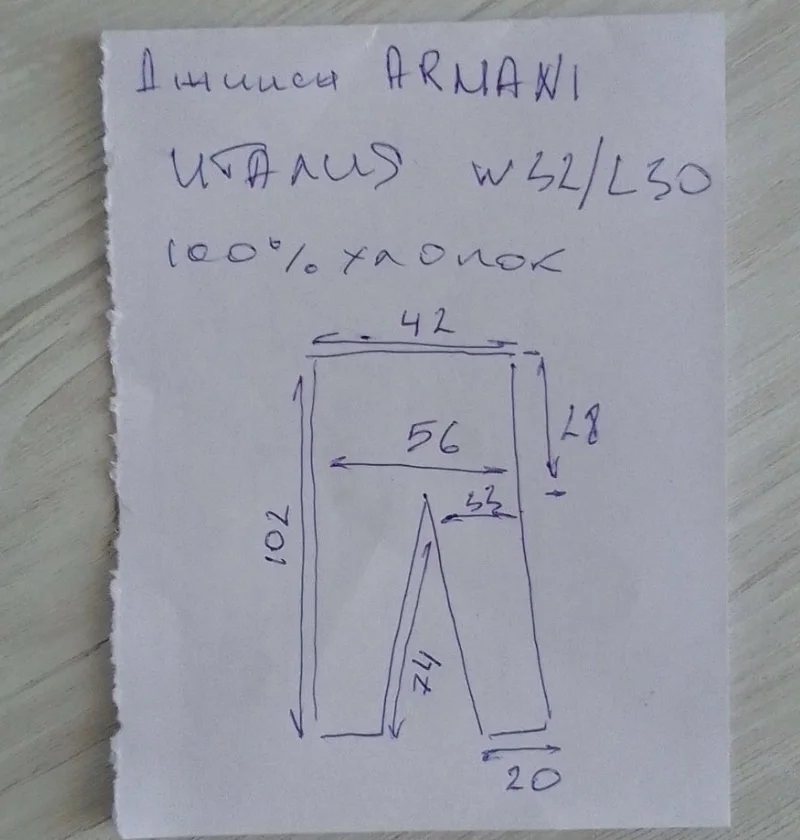 Джинсы ARMANI
ИТАЛИЯ W32/L30
100% хлопок
42
28
56
33
102
74
20